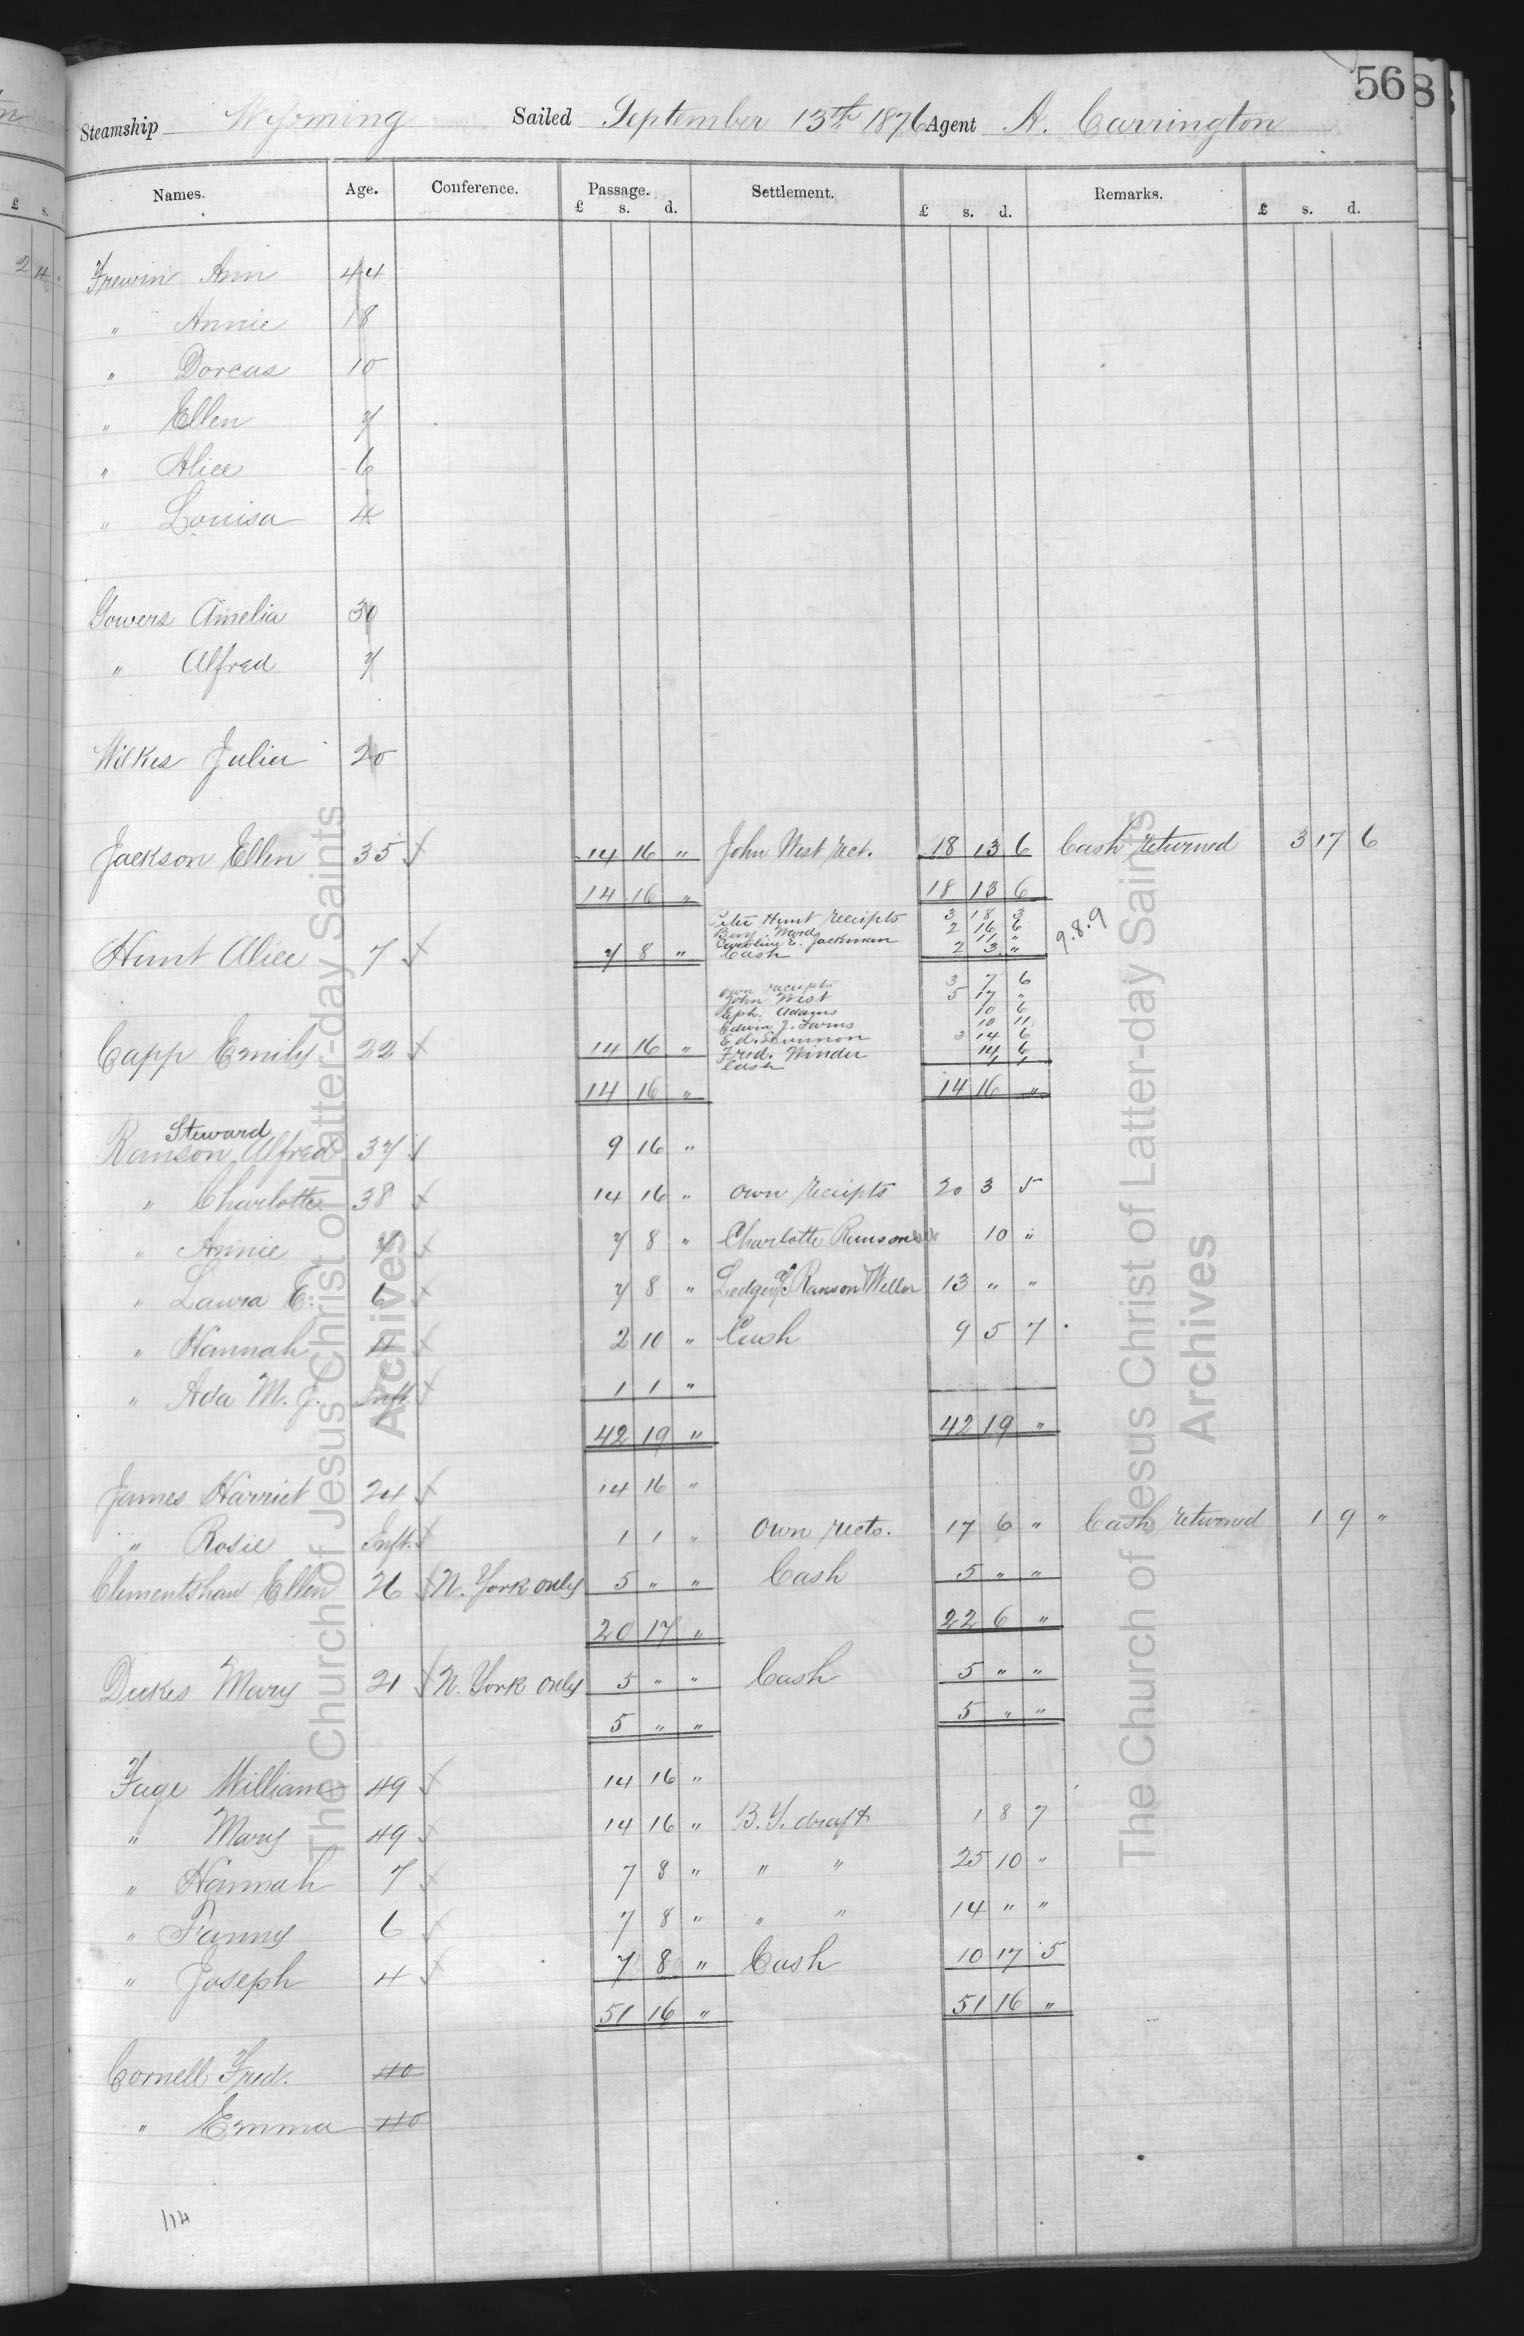 56
Steamship Wyoming Sailed September 13th 1876 Agent A. Carrington
Names. Age. Conference. Passage. Settlement. Remarks.
£ s. d. £ s. d. £ s. d.
Frewin Ann 44
" Annie 18
" Dorcas 10
" Ellen 7
" Alice 6
" Louisa 4
Gowers Amelia 30
" Alfred 7
Wilkes Julia 20
Jackson Ellen 35 14 16 " John West rect. 18 13 6 Cash returned 3 17 6
14 16 " 18 13 6
Peter Hunt receipts 3 18 3
Benj. Ward 2 16 6
Caroline E. Jackman 11 "
Hunt Alice 7 7 8 " Cash 2 3 " 9.8.9
own receipts 3 7 6
John West 5 17 "
Eph. Adams 10 6
Edwin J. 10 11
Ed. 3 14 6
Capp Emily 22 14 16 " Fred. Winder 14 6
Cash
14 16 " 14 16 "
Steward
Ranson Alfred 37 9 16 "
" Charlotte 38 14 16 " own receipts 20 3 5
" Annie 7 7 8 " Charlotte 10 "
" Laura E. 6 7 8 " Ranson Weller 13 " "
" Hannah 4 2 10 " Cash 9 5 7
" Ada M. J. Inft. 1 1 "
42 19 " 42 19 "
James Harriet 24 14 16 "
" Rosie Inft. 1 1 " own rects. 17 6 " Cash returned 1 9 "
Clementshaw Ellen 26 N. York only 5 " " Cash 5 " "
20 17 " 22 6 "
Dukes Mary 21 N. York only 5 " " Cash 5 " "
5 " " 5 " "
Fage William 49 14 16 "
" Mary 49 14 16 " B.Y. draft 1 8 7
" Hannah 7 7 8 " " " 25 10 "
" Fanny 6 7 8 " " " 14 " "
" Joseph 4 7 8 " Cash 10 17 5
51 16 " 51 16 "
Cornell Fred. 40
" Emma 40
114
The Church of Jesus Christ of Latter-day Saints
Archives
The Church of Jesus Christ of Latter-day Saints
Archives